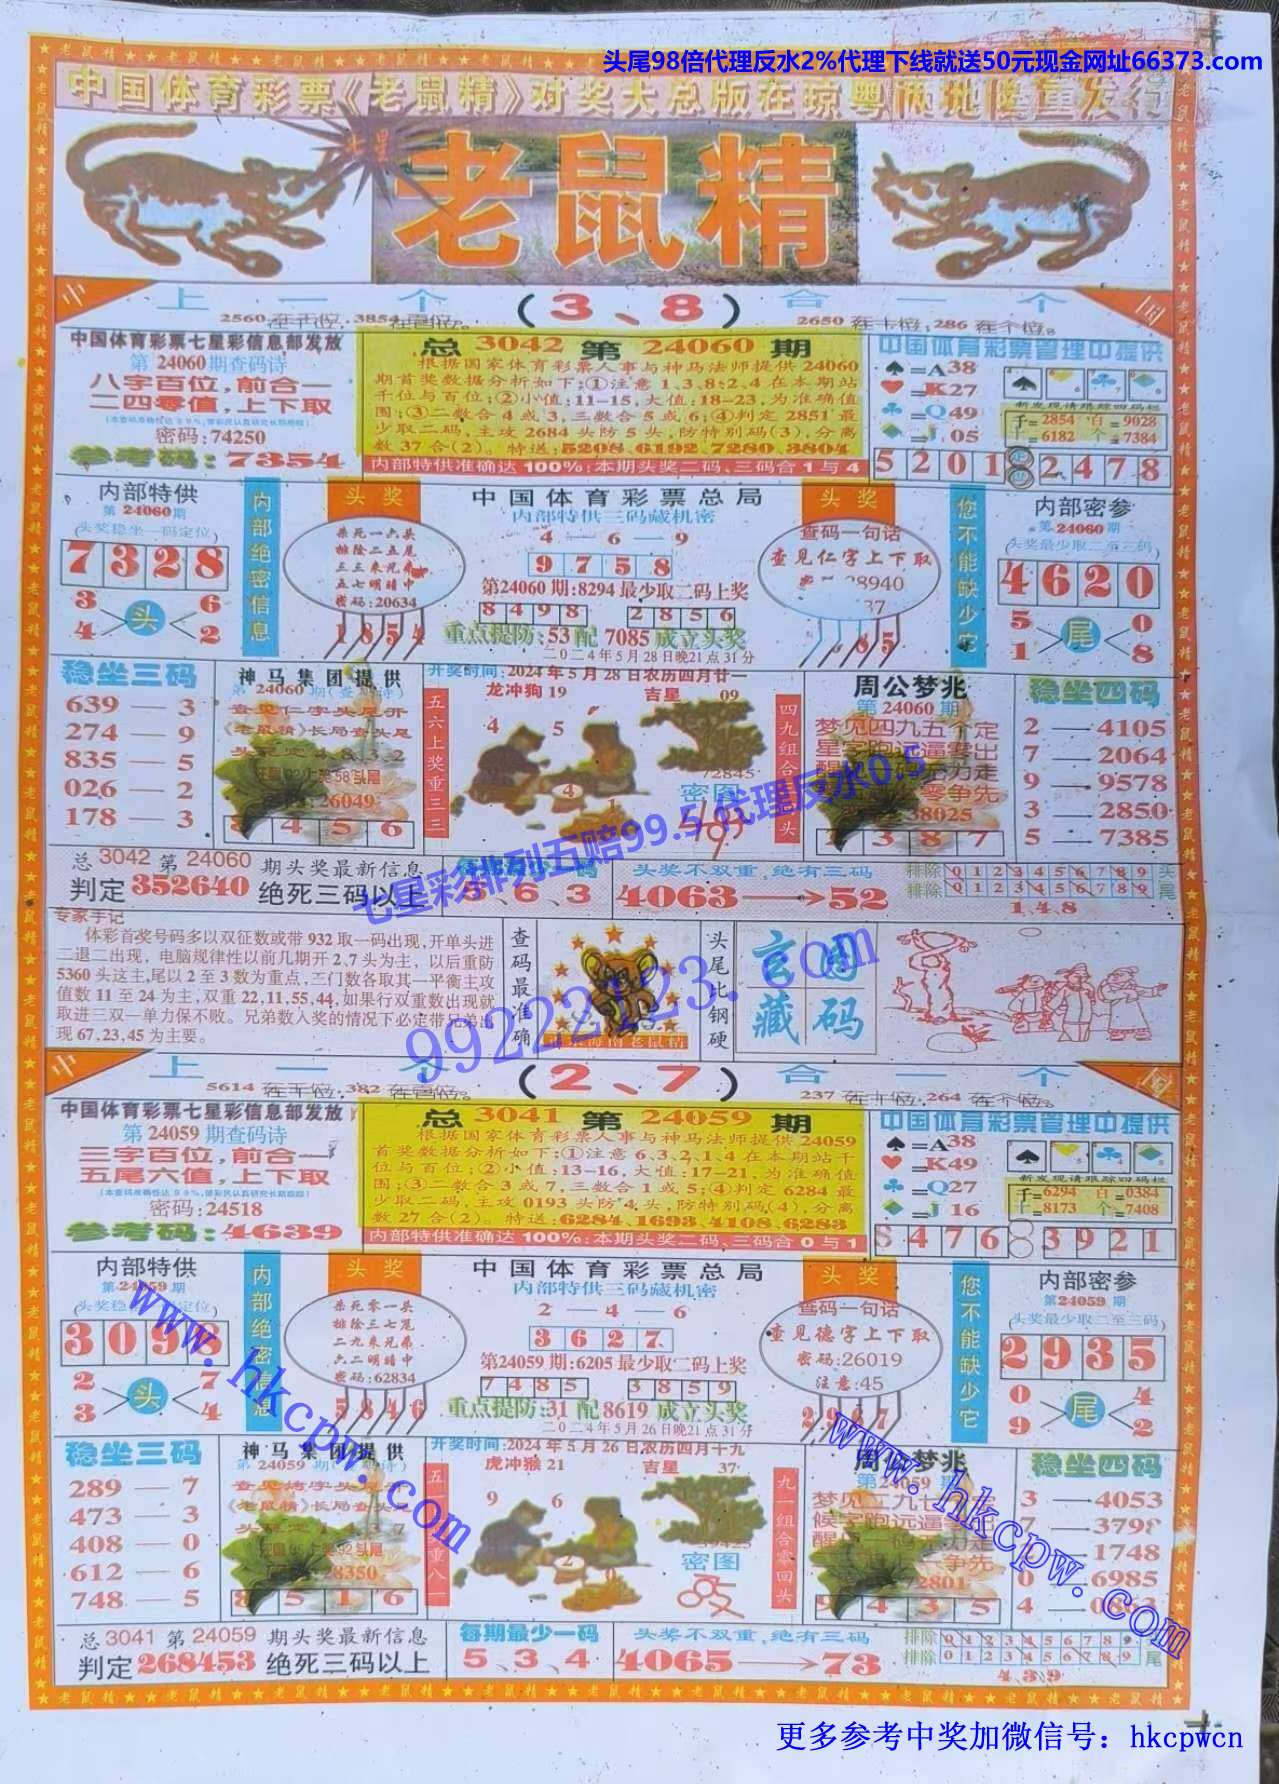 头尾98倍代理反水2%代理下线就送50元现金网址66373.com
中国体育彩票《老鼠精》对奖大总版在琼粤两地隆重发行
七星
老鼠精
上一个（3、8）合一个
2560在千位，3854在百位。
2650在十位，286在个位。
中国体育彩票七星彩信息部发放
第24060期查码诗
八字百位，前合一
二四零值，上下取
密码:74250
参考码:7354
总3042第24060期
根据国家体育彩票人事与神马法师提供24060
期首奖数据分析如下:①注意1、3、8、2、4在本期站
千位与百位;②小值:11-15,大值:18-23,为准确值
围;③二数合4或3,三数合5或6;④判定2851最
少取二码,主攻2684头防5头,防特别码(3),分离
数37合(2)。特送:5208、6192、7280、3804
内部特供准确达100%:本期头奖二码、三码合1与4
中国体育彩票管理中提供
♠=A38
♥=K27
♣=Q49
♦=J05
新发现请跟踪四码栏
千=2854 百=9028
十=6182 个=7384
5201 82478
内部特供
第24060期
(头奖稳坐一码定位)
7328
3 6
头
4 2
内部绝密信息
头奖
杀死一六头
排除二五尾
三三来兄弟
五七明猜中
密码:20634
1854
中国体育彩票总局
内部特供三码藏机密
4—6—9
9758
第24060期:8294最少取二码上奖
8498 2856
重点提防:53配7085成立头奖
二0二4年5月28日晚21点31分
头奖
查码一句话
查见仁字上下取
您不能缺少它
内部密参
第24060期
(头奖最少取二至三码)
4620
5 0
尾
1 8
稳坐三码
639—3
274—9
835—5
026—2
178—3
神马集团提供
第24060期(查码诗)
查见仁字头尾开
《老鼠精》长局查头尾
26049
8456
五六上奖重三三
开奖时间:2024年5月28日农历四月廿一
龙冲狗19 吉星09
4 5
4
72845
密图
四九组合
周公梦兆
第24060期
梦见四九五个定
38025
3387
稳坐四码
2—4105
7—2064
9—9578
3—2850
5—7385
总3042第24060期头奖最新信息
判定352640绝死三码以上
每期最少一码
5、6、3
头奖不双重,绝有三码
4063→52
排除0123456789头
排除0123456789尾
1、4、8
专家手记
体彩首奖号码多以双征数或带932取一码出现,开单头进
二退二出现，电脑规律性以前几期开2、7头为主，以后重防
5360头这主,尾以2至3数为重点,三门数各取其一平衡主攻
值数11至24为主,双重22,11,55,44,如果行双重数出现就
取进三双一单力保不败。兄弟数入奖的情况下必定带兄弟出
现67,23,45为主要。
查码最准确
头尾比钢硬
玄图藏码
上一个（2、7）合一个
5614在千位，382在百位。
237在十位，264在个位。
中国体育彩票七星彩信息部发放
第24059期查码诗
三字百位，前合一
五尾六值，上下取
密码:24518
参考码:4639
总3041第24059期
根据国家体育彩票人事与神马法师提供24059
首奖数据分析如下:①注意6、3、2、1、4在本期站千
位与百位;②小值:13-16,大值:17-21,为准确值
围;③二数合3或7,三数合1或5;④判定6284最
少取二码,主攻0193头防4头,防特别码(4),分离
数27合(2)。特送:6284、1693、4108、6283
内部特供准确达100%:本期头奖二码、三码合0与1
中国体育彩票管理中提供
♠=A38
♥=K49
♣=Q27
♦=J16
新发现请跟踪四码栏
千=6294 百=0384
十=8173 个=7408
8476 83921
内部特供
第24059期
3098
2 7
头
3 4
内部绝密信息
头奖
杀死零一头
排除三七尾
二九来兄弟
六二明猜中
密码:62834
5846
中国体育彩票总局
内部特供三码藏机密
2—4—6
3627
第24059期:6205最少取二码上奖
7485 3859
重点提防:31配8619成立头奖
二0二4年5月26日晚21点31分
头奖
查码一句话
查见德字上下取
密码:26019
注意:45
2947
您不能缺少它
内部密参
第24059期
(头奖最少取二至三码)
2935
0 4
尾
9 2
稳坐三码
289—7
473—3
408—0
612—6
748—5
神马集团提供
28350
8516
开奖时间:2024年5月26日农历四月十九
虎冲猴21 吉星37
9 6
密图
九一组合零回头
周公梦兆
第24059期
9435
稳坐四码
3—4053
7—3798
2—1748
0—6985
4—0863
总3041第24059期头奖最新信息
判定268453绝死三码以上
每期最少一码
5、3、4
头奖不双重,绝有三码
4065→73
排除0123456789
排除0123456789尾
4、3、9
七星彩排列五赔99.5代理反水0.5
99222123.com
www.hkcpw.com
www.hkcpw.com
更多参考中奖加微信号：hkcpwcn